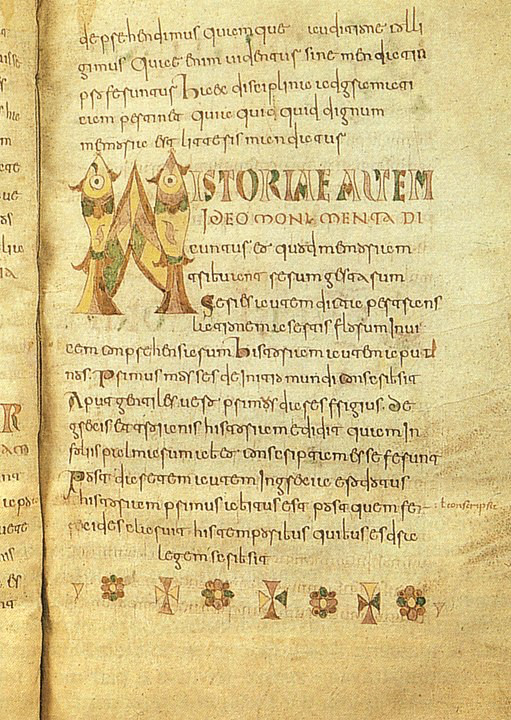 depraehendimus quam que auditione colli
gimus Quae enim videntur sine mendaciu
proferuntur haec disciplina ad gramati
cam pertinet quia quid quid dignum
memoria est litteris mandatur
ISTORIAE AUTEM
IDEO MONUMENTA DI
cuntur eo quod memoriam
tribuant rerum gestarum
Series autem dicta per trans
lationem a sertis florum invi
cem conprehensarum historiam autem aput
nos Primus moyses de initio mundi conscribsit
Aput gentiles vero primus dares frigius De
grecis et troianis historiam edidit quam in
foliis palmarum ab eo conscriptam esse ferunt
Post daretem autem in grecia erodotus
historiam primus abitus est post quem fer
conscripsit
ecides claruit his temporibus quibus esdra
legem scribsit